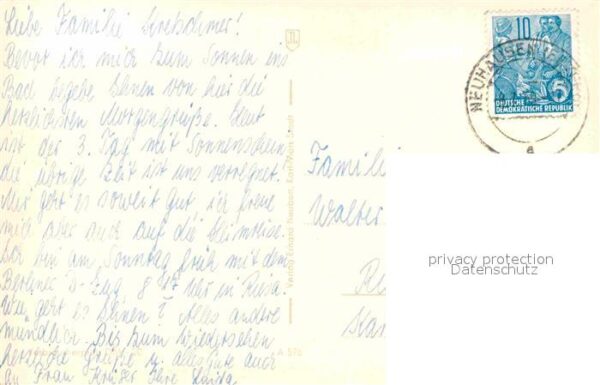 Liebe Familie
Bevor ich mich zum Sonnen ins
Bad begebe Ihnen von hier die
herzlichsten Morgengrüße. Heut
ist der 3. Tag mit Sonnenschein
die übrige Zeit ist uns verregnet.
Mir geht es soweit gut ich freue
mich aber auch auf die Heimreise.
bin am Sonntag früh mit dem
Berliner D-Zug 8 Uhr in Riesa.
Wie geht es Ihnen? Alles andere
mündlich. Bis zum Wiedersehen
herzliche Grüße u. alles Gute auch
an Frau Ihre
Familie
Walter
10
5
DEUTSCHE
DEMOKRATISCHE REPUBLIK
NEUHAUSEN
a
A 576
privacy protection
Datenschutz